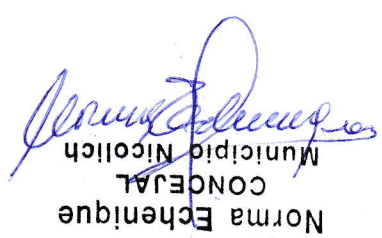 Norma Echenique
CONCEJAL
Municipio Nicolich